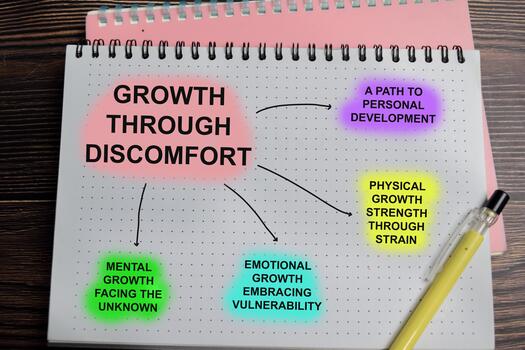 GROWTH
THROUGH
DISCOMFORT
A PATH TO
PERSONAL
DEVELOPMENT
PHYSICAL
GROWTH
STRENGTH
THROUGH
STRAIN
MENTAL
GROWTH
FACING THE
UNKNOWN
EMOTIONAL
GROWTH
EMBRACING
VULNERABILITY